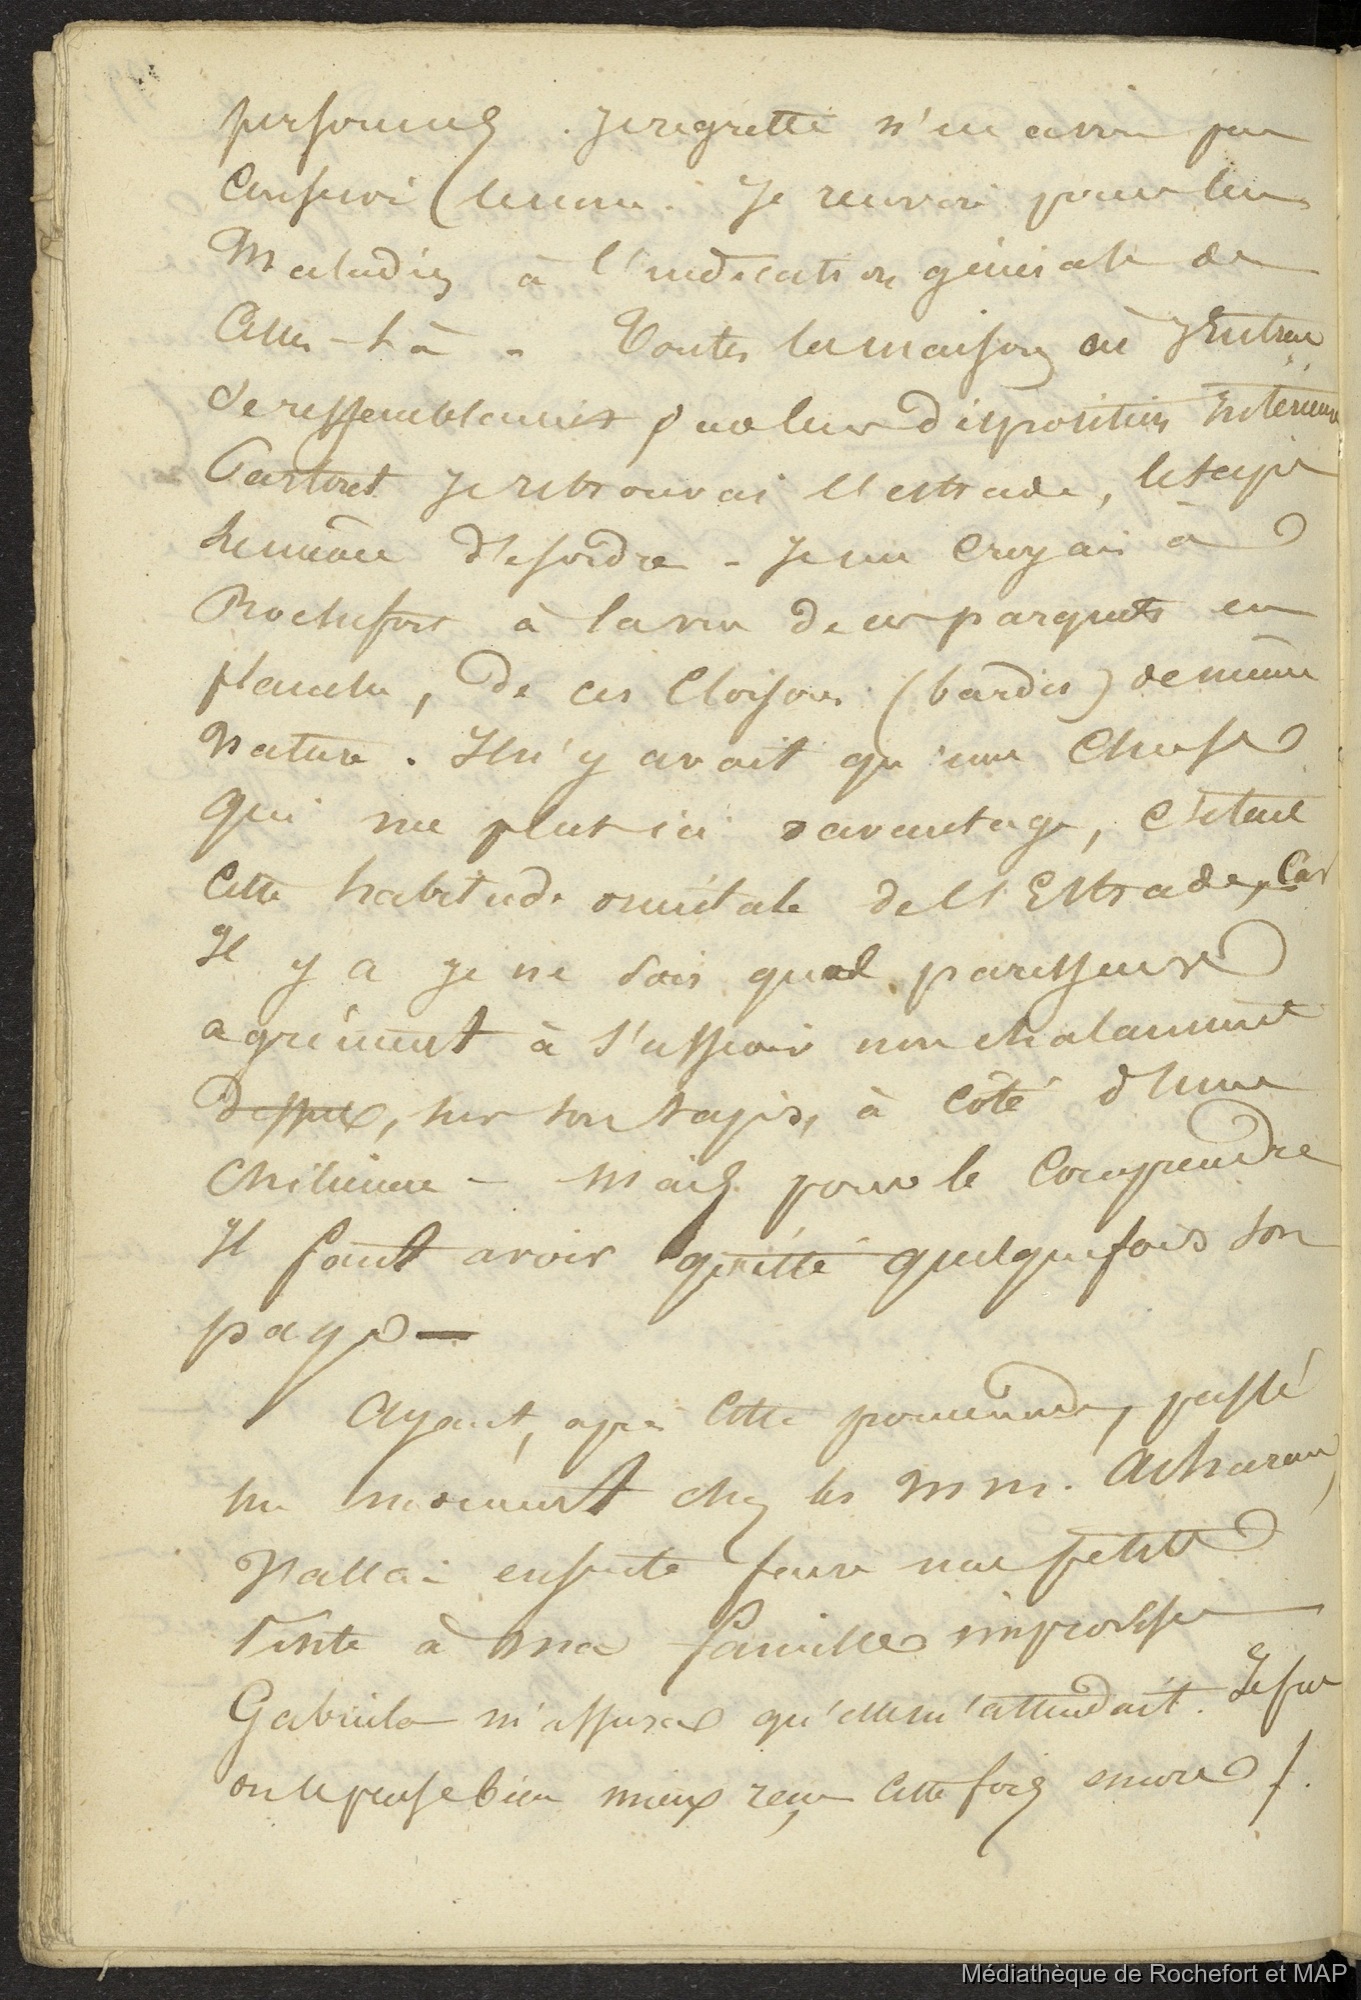 personnes. Je regrette n'en avoir pas
conservé le nom. Je renvoie pour les
Maladies à l'indication générale de
Celles-là - Toutes les maisons où J'entrai
se ressemblaient par leur disposition Intérieure
Partout Je retrouvai l'estrade, le tapis
le même désordre - Je me croyais à
Rochefort à la vue de ces parquets en
planche, de ces Cloisons (bardis) de même
Nature. Il n'y avait qu'une Chose
qui me plut ici davantage, c'était
Cette habitude orientale de l'Estrade, Car
Il y a je ne sais quel paresseux
agrément à s'asseoir nonchalamment
dessus, sur son tapis, à côté d'une
Chilienne - Mais pour le Comprendre
Il faut avoir quitté quelquefois son
pays —
Ayant, après Cette promenade, passé
un moment chez les MM.
J'allai ensuite faire une petite
Visite à ma famille improvisée
Gabriela m'assura qu'elle m'attendait. Je fus
on le pense bien mieux reçu Cette fois encore
Médiathèque de Rochefort et MAP